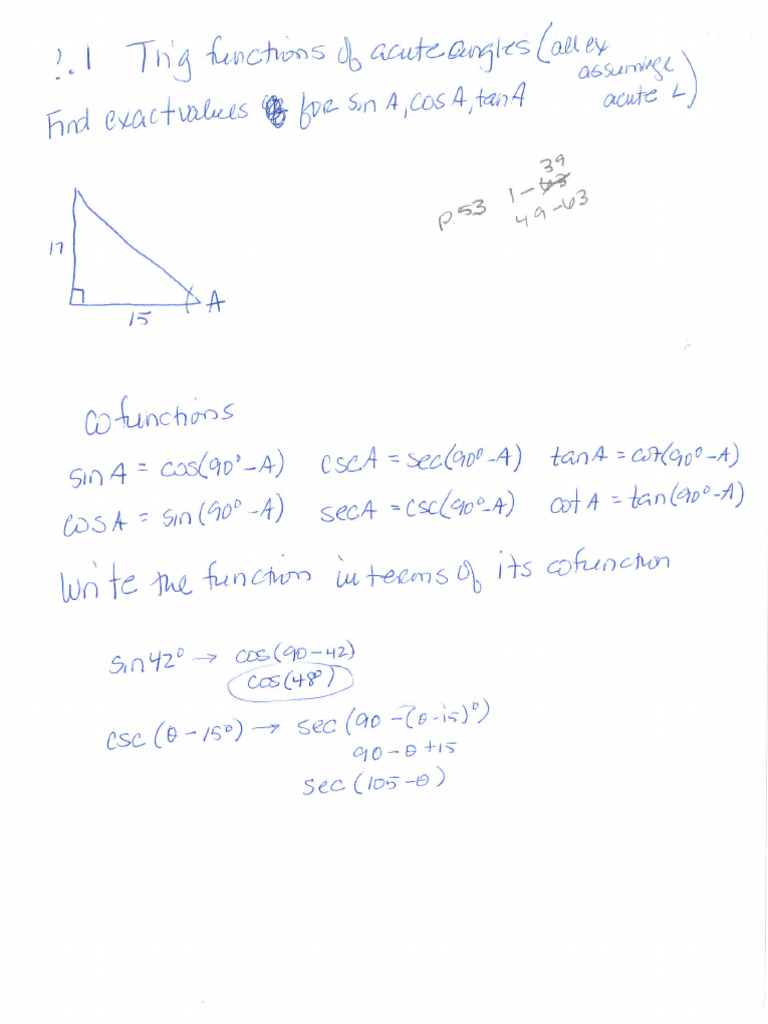 2.1 Trig functions of acute angles (all ex
assuming
acute ∠)
Find exact values for sin A, cos A, tan A
39
p.53 1-63
49-63
17
A
15
Cofunctions
sin A = cos(90°-A) csc A = sec(90°-A) tan A = cot(90°-A)
cos A = sin(90°-A) sec A = csc(90°-A) cot A = tan(90°-A)
Write the function in terms of its cofunction
sin 42° → cos(90-42)
cos(48°)
csc(θ-15°) → sec(90-(θ-15)°)
90-θ+15
sec(105-θ)